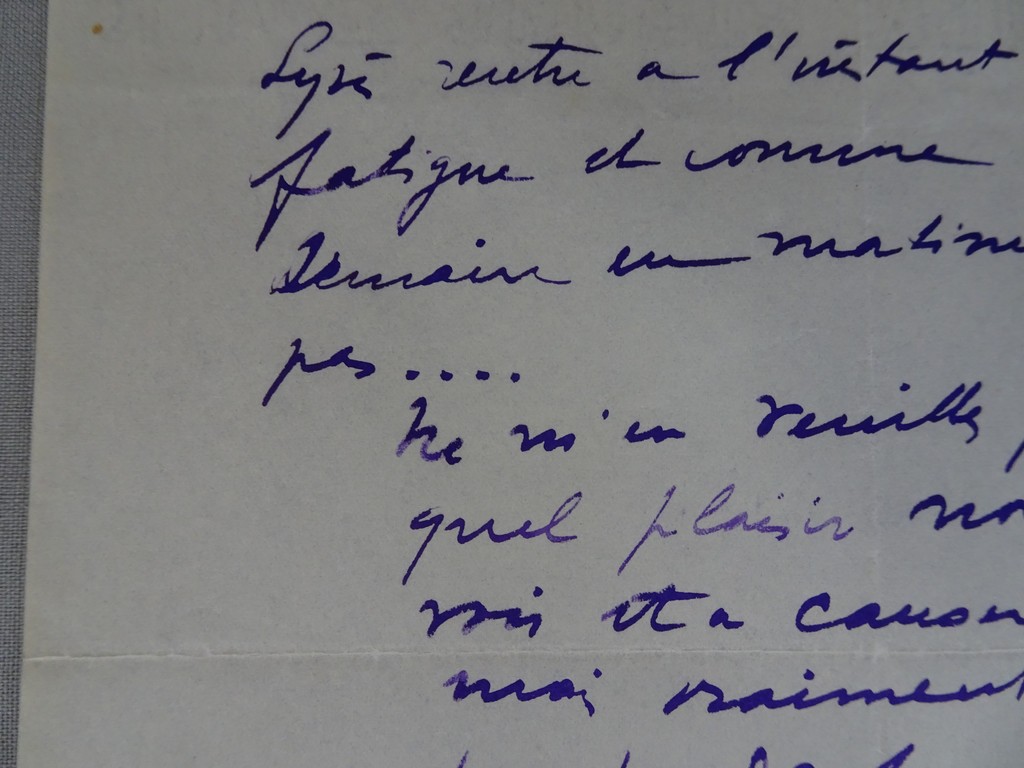 rentre a l'instant
fatigue et comme
Demain en matine
pas....
Ne m'en veuillez
quel plaisir no
voir et a causer
moi vraiment